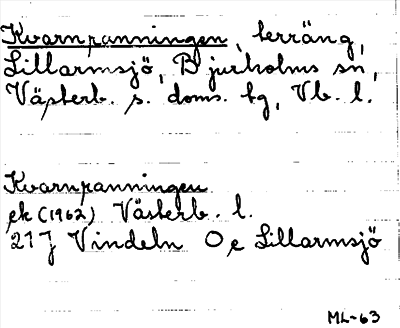 Kvarnpanningen, terräng,
Lillarmsjö, Bjurholms sn,
Västerb. s. doms. tg, Vb. l.
Kvarnpanningen
ek (1962) Västerb. l.
21 J Vindeln Oe Lillarmsjö
ML-63